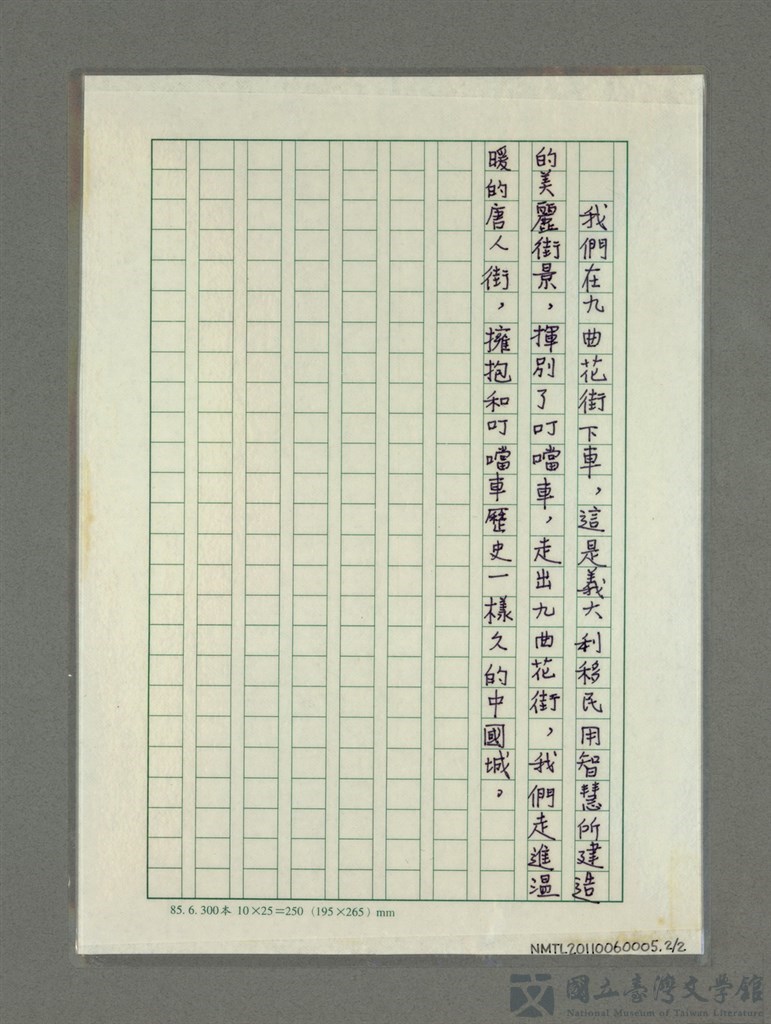 我們在九曲花街下車，這是義大利移民用智慧所建造
的美麗街景，揮別了叮噹車，走出九曲花街，我們走進溫
暖的唐人街，擁抱和叮噹車歷史一樣久的中國城。
85.6.300本 10×25=250 (195×265) mm
NMTL20110060005.2/2
國立臺灣文學館
National Museum of Taiwan Literature